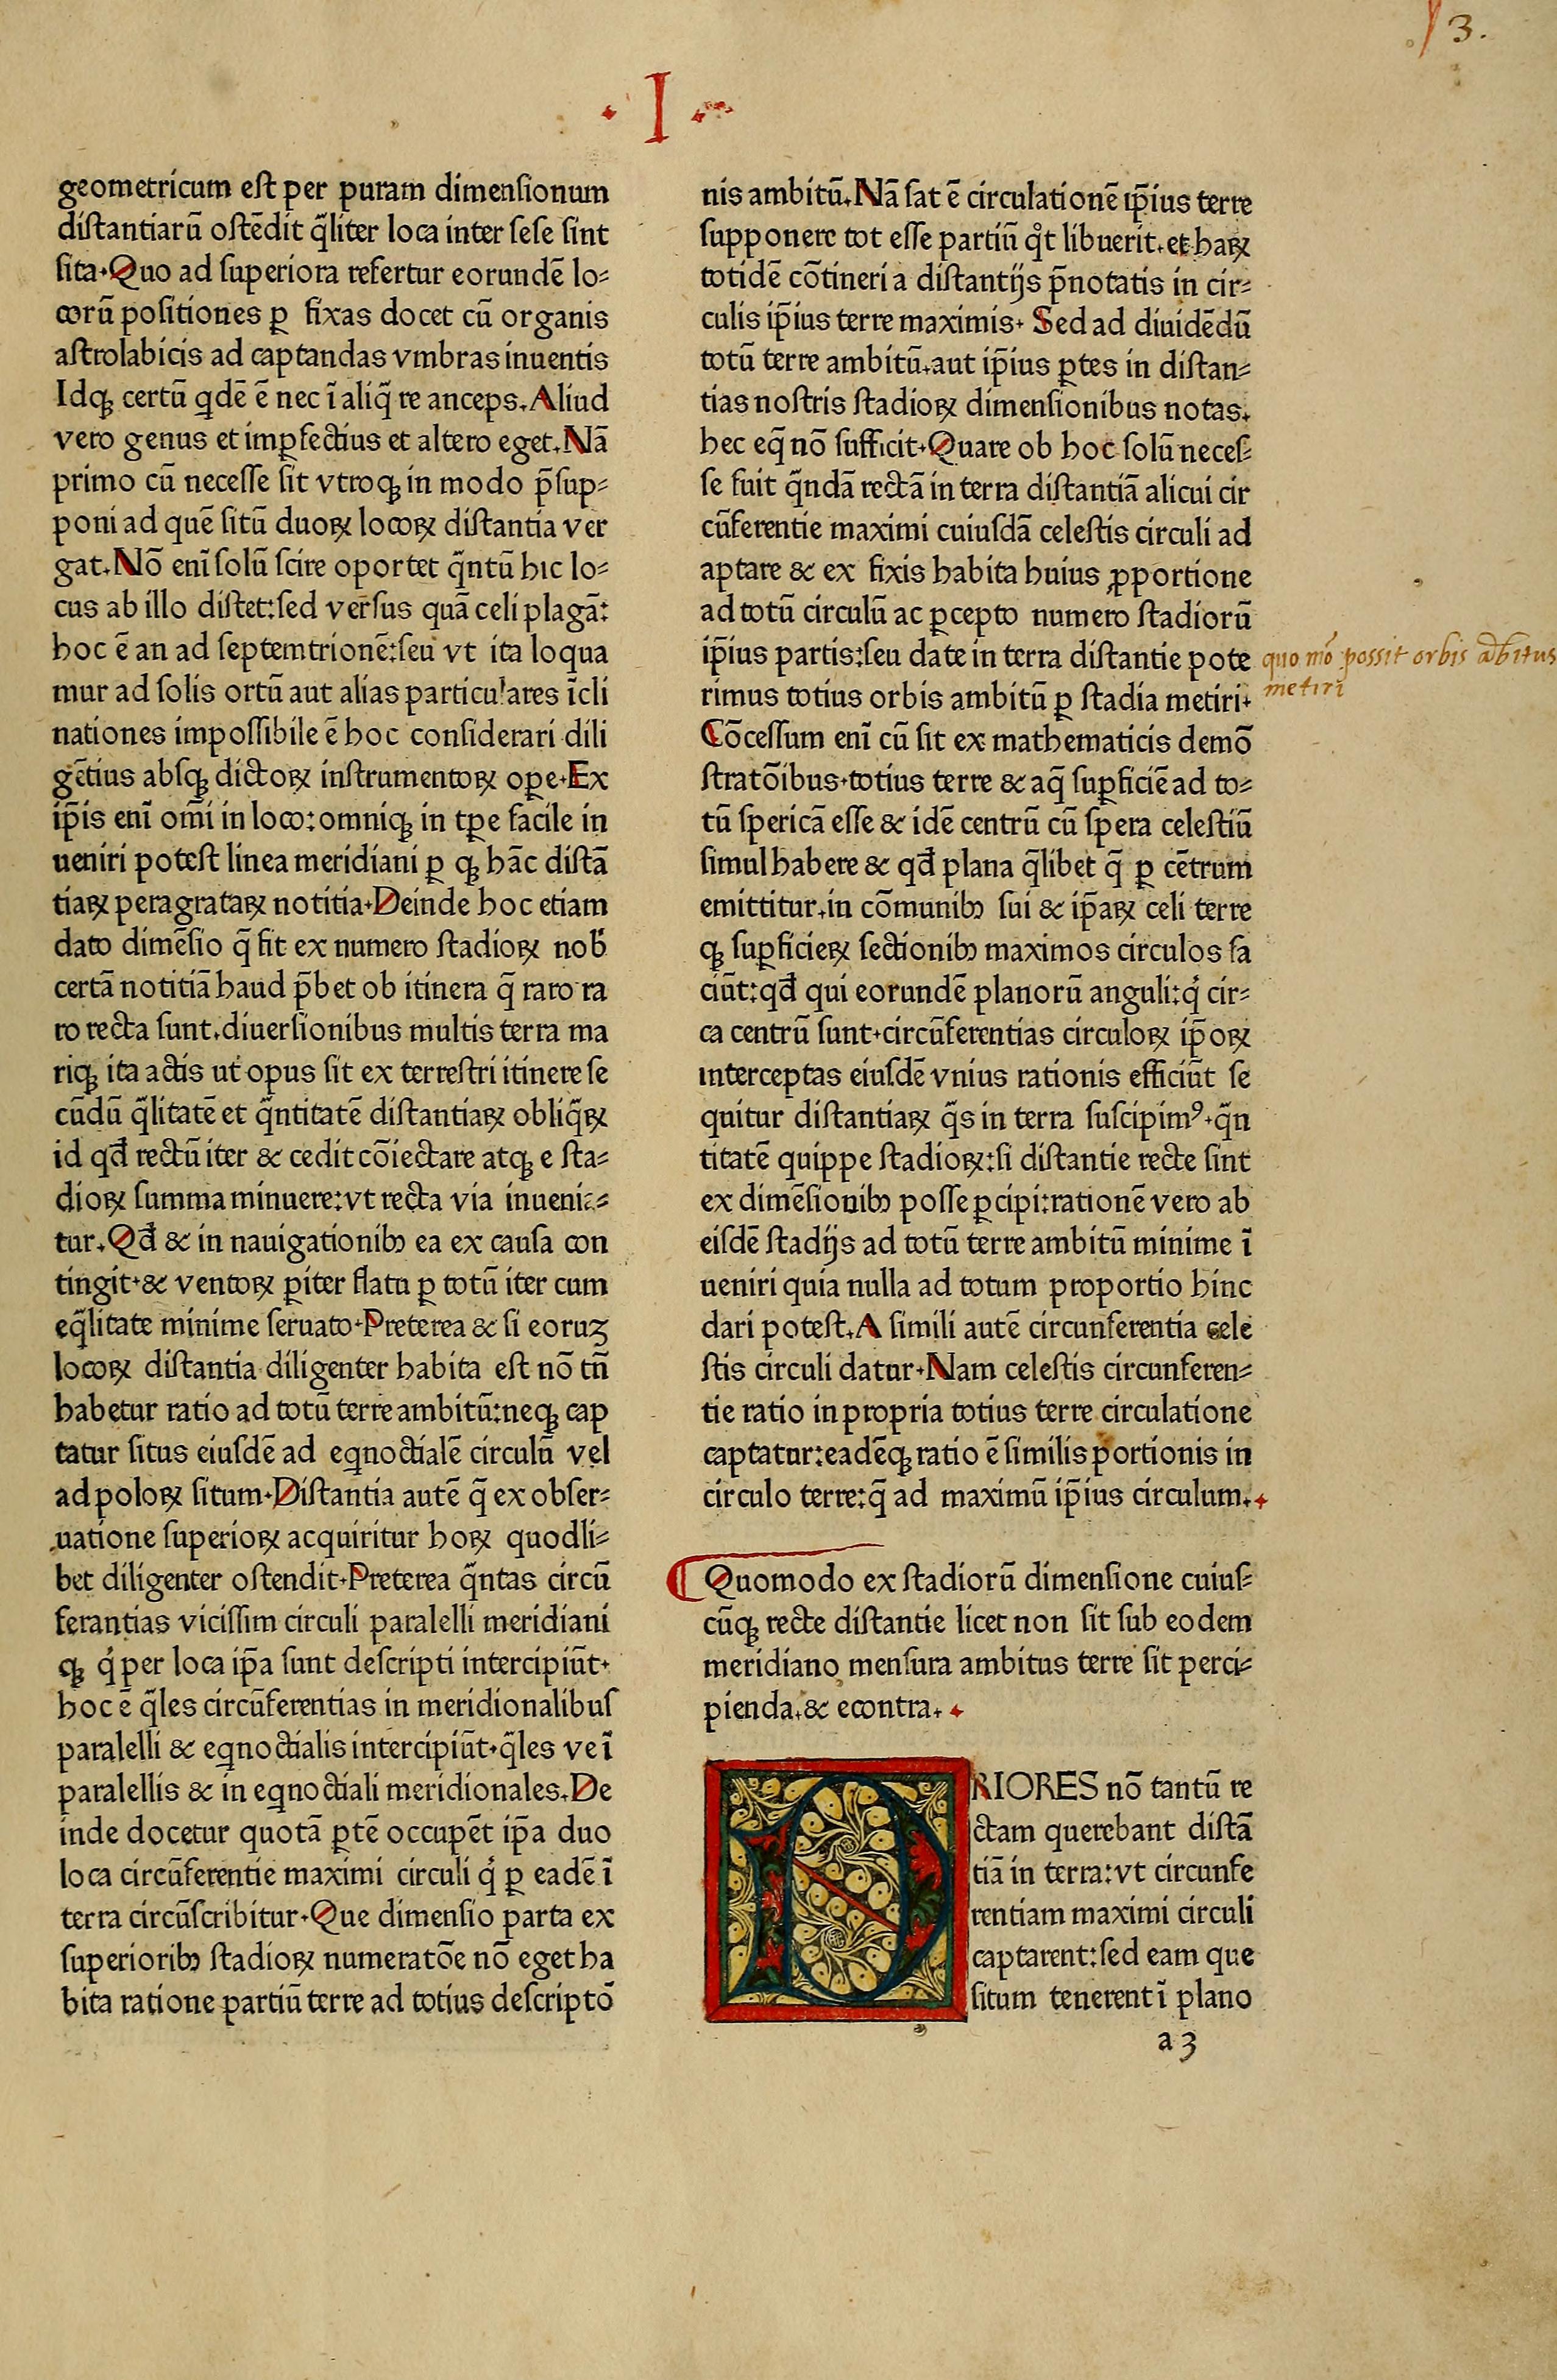 3.
I
geometricum eſt per puram dimenſionum
diſtantiarū oſtēdit q̄liter loca inter ſeſe ſint
ſita.Quo ad ſuperiora refertur eorundē lo⸗
corū poſitiones ꝑ fixas docet cū organis
aſtrolabicis ad captandas vmbras inuentis
Idqꝫ certū qdē ē nec ī aliq̄ re anceps.Aliud
vero genus et imꝑfectius et altero eget.Nā
primo cū neceſſe ſit vtroqꝫ in modo p̄ſup⸗
poni ad quē ſitū duoꝝ locoꝝ diſtantia ver
gat.Nō enī ſolū ſcire oportet q̄ntū hic lo⸗
cus ab illo diſtet:ſed verſus quā celi plagā:
hoc ē an ad ſeptemtrionē:ſeu vt ita loqua
mur ad ſolis ortū aut alias particulares īcli
nationes impoſſibile ē hoc conſiderari dili
gētius abſqꝫ dictoꝝ inſtrumentoꝝ ope.Ex
ip̄is enī om̄i in loco:omniqꝫ in tꝑe facile in
ueniri poteſt linea meridiani ꝑ qꝫ hāc diſtā
tiaꝝ peragrataꝝ notitia.Deinde hoc etiam
dato dimēſio q̄ fit ex numero ſtadioꝝ nob̄
certā notitiā haud p̄bet ob itinera q̄ raro ra
ro recta ſunt.diuerſionibus multis terra ma
riqꝫ ita actis ut opus ſit ex terreſtri itinere ſe
cūdū q̄litatē et q̄ntitatē diſtantiaꝝ obliq̄ꝝ
id qd̄ rectū iter & cedit cōiectare atqꝫ e ſta⸗
dioꝝ ſumma minuere:vt recta via inueni⸗
tur.Qd̄ & in nauigationibꝫ ea ex cauſa con
tingit.& ventoꝝ ꝑiter flatu ꝑ totū iter cum
eq̄litate minime ſeruato.Preterea & ſi eoruꝫ
locoꝝ diſtantia diligenter habita eſt nō tn̄
habetur ratio ad totū terre ambitū:neqꝫ cap
tatur ſitus eiuſdē ad eqnoctialē circulū vel
ad poloꝝ ſitum.Diſtantia autē q̄ ex obſer⸗
uatione ſuperioꝝ acquiritur hoꝝ quodli⸗
bet diligenter oſtendit.Preterea q̄ntas circū
ferantias viciſſim circuli paralelli meridiani
qꝫ qͥ per loca ip̄a ſunt deſcripti intercipiūt.
hoc ē q̄les circūferentias in meridionalibuſ
paralelli & eqnoctialis intercipiūt.q̄les ve ī
paralellis & in eqnoctiali meridionales.De
inde docetur quotā ꝑtē occupēt ip̄a duo
loca circūferentie maximi circuli qͥ ꝑ eadē ī
terra circūſcribitur.Que dimenſio parta ex
ſuperioribꝫ ſtadioꝝ numeratōe nō eget ha
bita ratione partiū terre ad totius deſcriptō
nis ambitū.Nā ſat ē circulationē ip̄ius terre
ſupponere tot eſſe partiū qͦt libuerit.et haꝝ
totidē cōtineri a diſtantijs p̄notatis in cir⸗
culis ip̄ius terre maximis. Sed ad diuidēdū
totū terre ambitū.aut ip̄ius ꝑtes in diſtan⸗
tias noſtris ſtadioꝝ dimenſionibus notas.
hec eq̄ nō ſufficit.Quare ob hoc ſolū neceſ⸗
ſe fuit q̄ndā rectā in terra diſtantiā alicui cir
cūferentie maximi cuiuſdā celeſtis circuli ad
aptare & ex fixis habita huius ꝓportione
ad totū circulū ac ꝑcepto numero ſtadiorū
ip̄ius partis:ſeu date in terra diſtantie pote
rimus totius orbis ambitū ꝑ ſtadia metiri.
Cōceſſum enī cū ſit ex mathematicis demō
ſtratōibus.totius terre & aq̄ ſuꝑficiē ad to⸗
tū ſpericā eſſe & idē centrū cū ſpera celeſtiū
ſimul habere & qd̄ plana q̄libet q̄ ꝑ cētrum
emittitur.in cōmunibꝫ ſui & ip̄aꝝ celi terre
qꝫ ſuꝑficieꝝ ſectionibꝫ maximos circulos fa
ciūt:qd̄ qui eorundē planorū anguli:qͥ cir⸗
ca centrū ſunt.circūferentias circuloꝝ ip̄oꝝ
interceptas eiuſdē vnius rationis efficiūt ſe
quitur diſtantiaꝝ q̄s in terra ſuſcipimꝰ.q̄n
titatē quippe ſtadioꝝ:ſi diſtantie recte ſint
ex dimēſionibꝫ poſſe ꝑcipi:rationē vero ab
eiſdē ſtadijs ad totū terre ambitū minime ī
ueniri quia nulla ad totum proportio hinc
dari poteſt.A ſimili autē circunferentia cele
ſtis circuli datur.Nam celeſtis circunferen⸗
tie ratio in propria totius terre circulatione
captatur:eadēqꝫ ratio ē ſimilis portionis in
circulo terre:q̄ ad maximū ip̄ius circulum.
quo mō possit orbis ābitus
metiri
Quomodo ex ſtadiorū dimenſione cuiuſ⸗
cūqꝫ recte diſtantie licet non ſit ſub eodem
meridiano menſura ambitus terre ſit perci⸗
pienda.& econtra.
PRIORES nō tantū re
ctam querebant diſtā
tiā in terra:vt circunfe
rentiam maximi circuli
captarent:ſed eam que
ſitum tenerent ī plano
a3